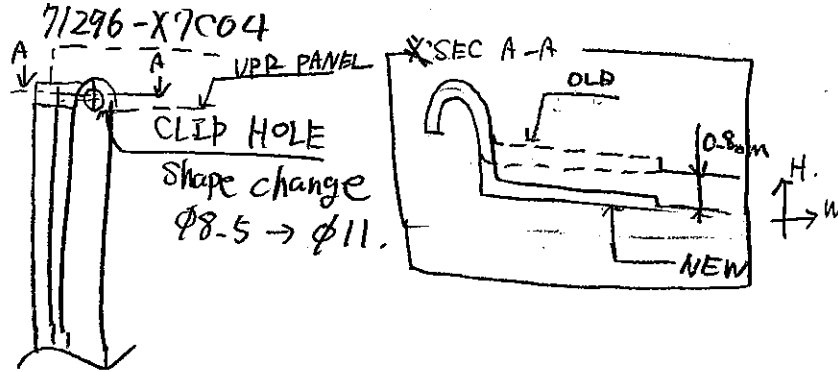 71296-X7C04
A
A
UPR PANEL
CLIP HOLE
Shape change
φ8-5 → φ11.
X'SEC A-A
OLD
0.8mm
H.
W
NEW